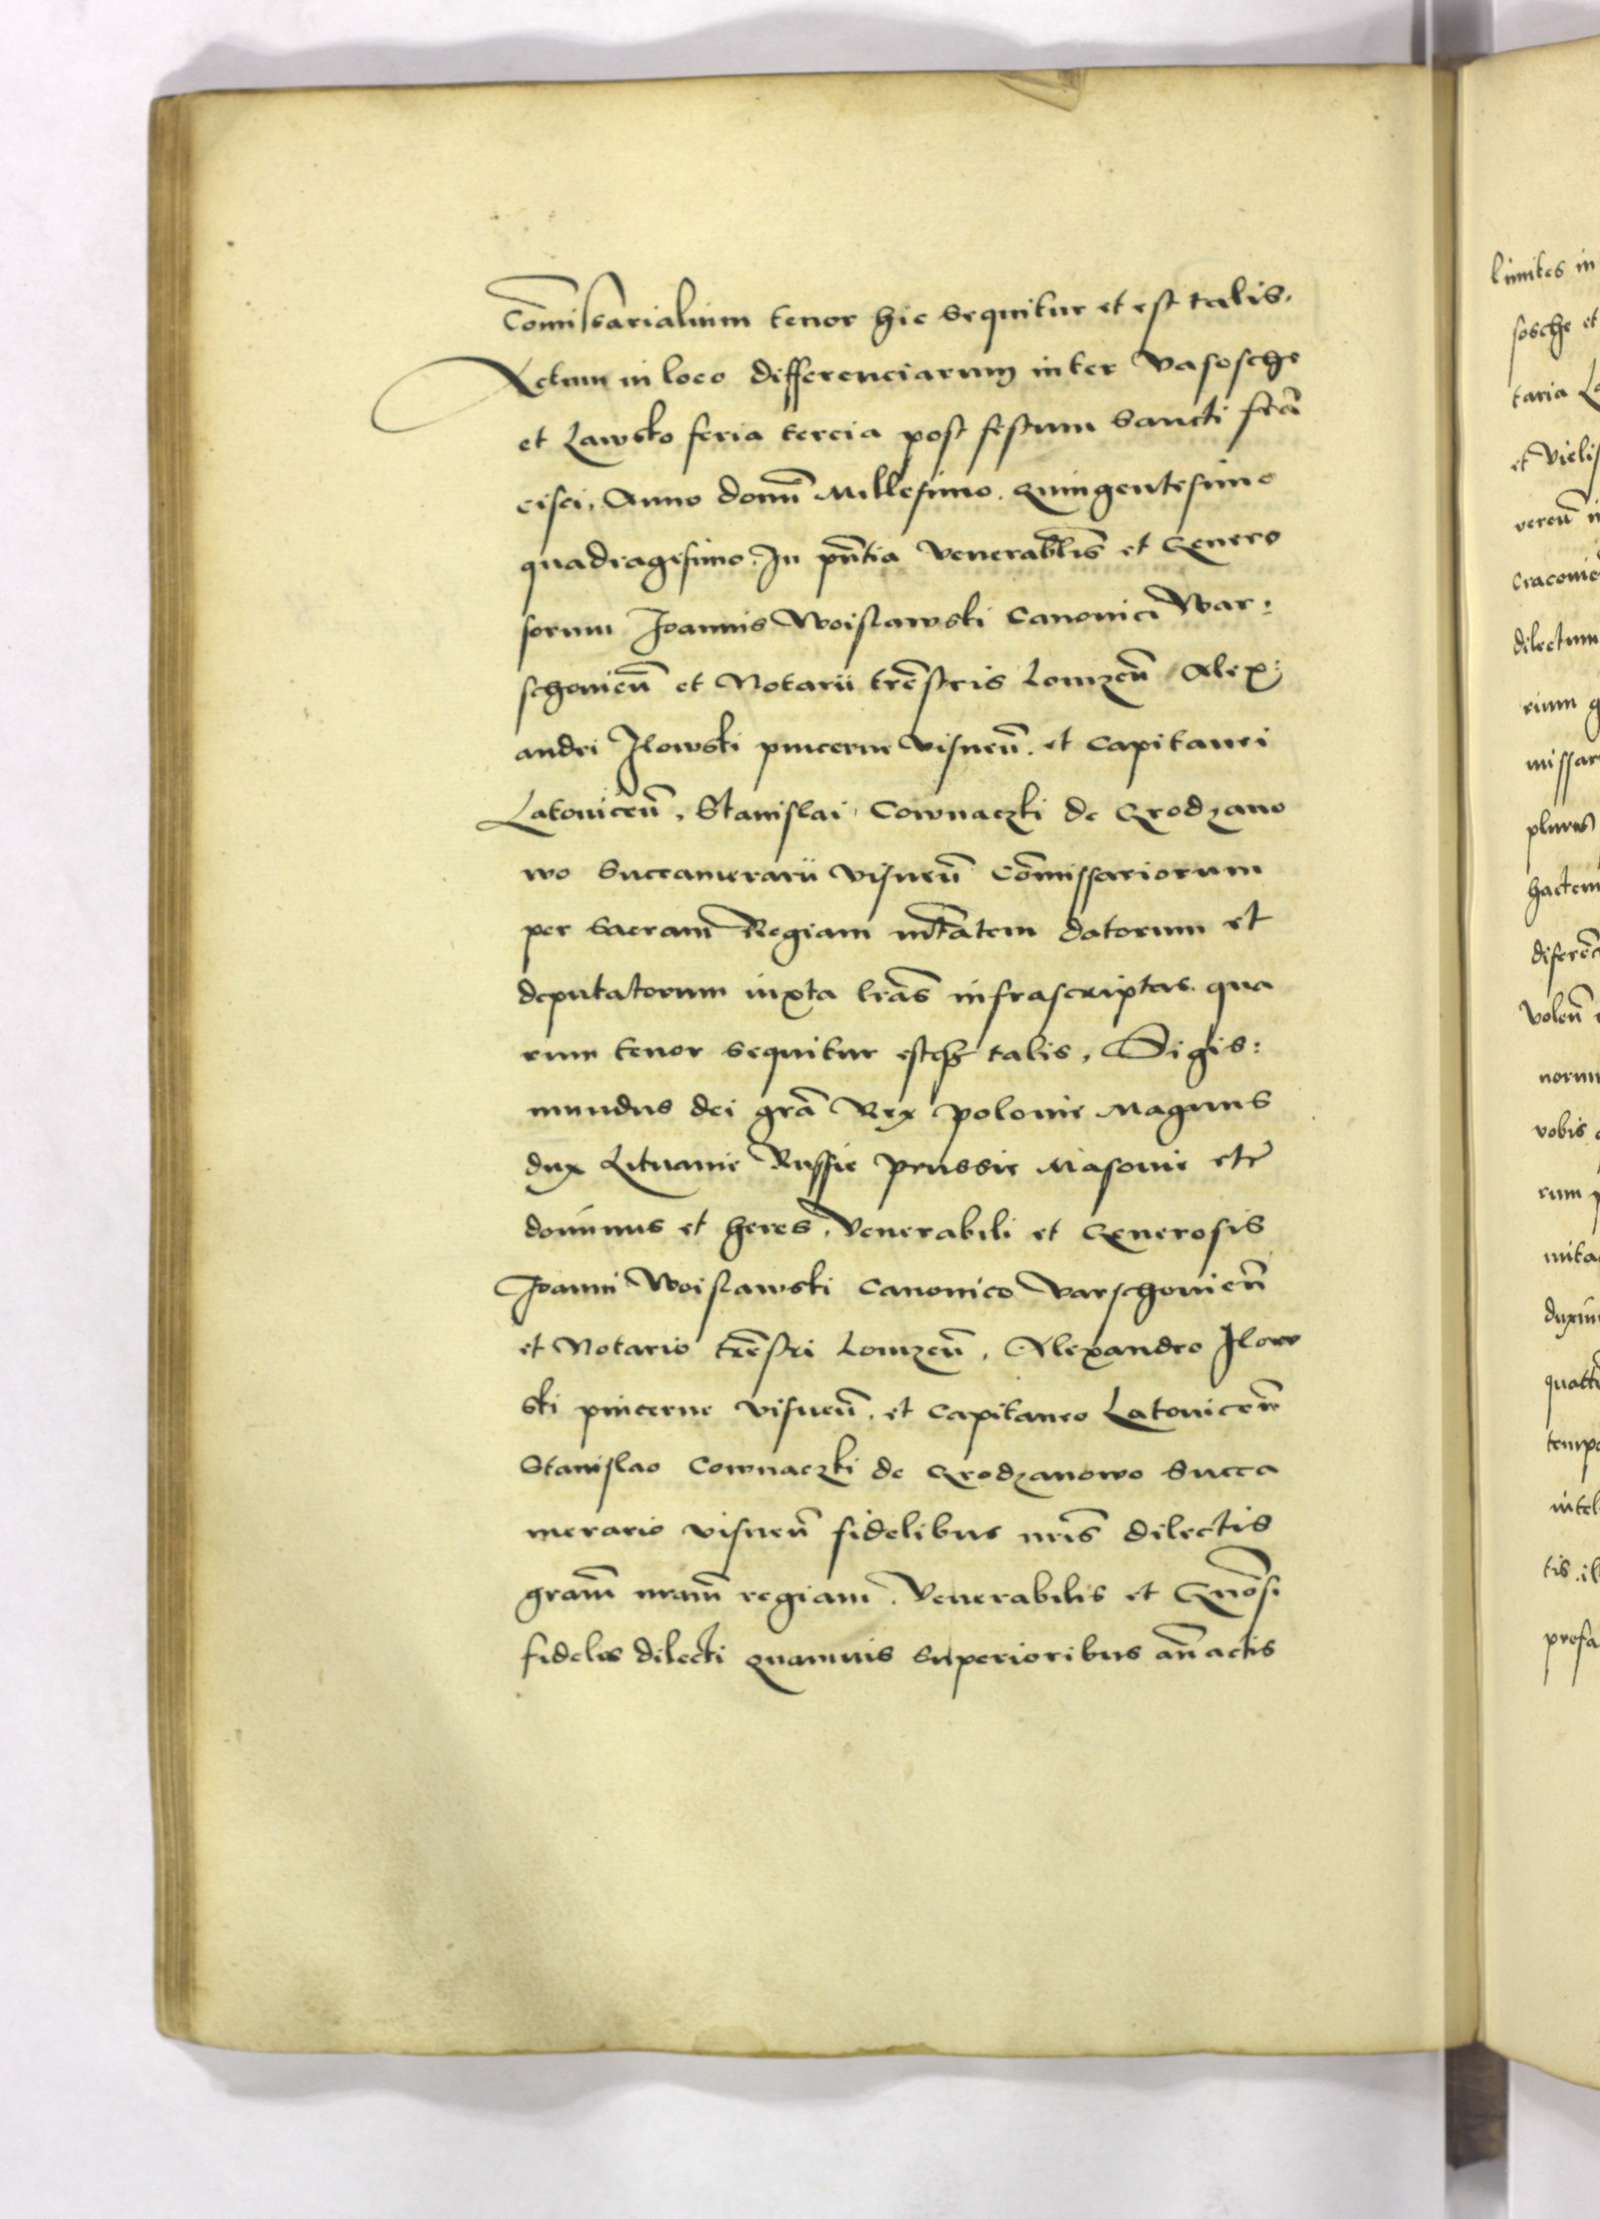 Com̃issarialium tenor hic sequitur et est talis.
Actum in loco differenciarum inter Vasosche
et Lawsko feria tercia post festum Sancti frã
cisci, Anno domñ Millesimo Quingentesimo
quadragesimo. In pñtia Venerabilis et Genero
sorum Joannis Woislawski Canonici War:
schovieñ et Notarii trẽstris Lomzeñ Alex:
andri Ilowski pincerne Visneñ. et Capitanei
Latoviceñ, Stanislai Cownaczki de Grodzano
wo Succamerarii Visneñ Com̃issariorum
per Sacram Regiam m̃tatem datorum et
deputatorum iuxta lrãs infrascriptas qua
rum tenor sequitur estqz talis, Sigis:
mundus dei grã Rex Polonie Magnus
dux Lituanie Russie Prussie Masovie etc
dominus et heres, Venerabili et Generosis
Joanni Woislawski Canonico Varschovieñ
et Notario trẽstri Lomzeñ, Alexandro Ilow
ski pincerne Visneñ, et Capitaneo Latoviceñ
Stanislao Cownaczki de Grodzanowo Succa
merario Visneñ fidelibus nrĩs dilectis
gram̃ nram̃ regiam. Venerabilis et Gñosi
fideles dilecti Quamvis superioribus añactis
limites in
sosche et
taria
et
vereñ
Cracovie
dilectum
rium
missar
plures
hacten
diferẽ
voleñ
norum
vobis
rum
mita
duxim
quatt
temp
intel
tis
prefa